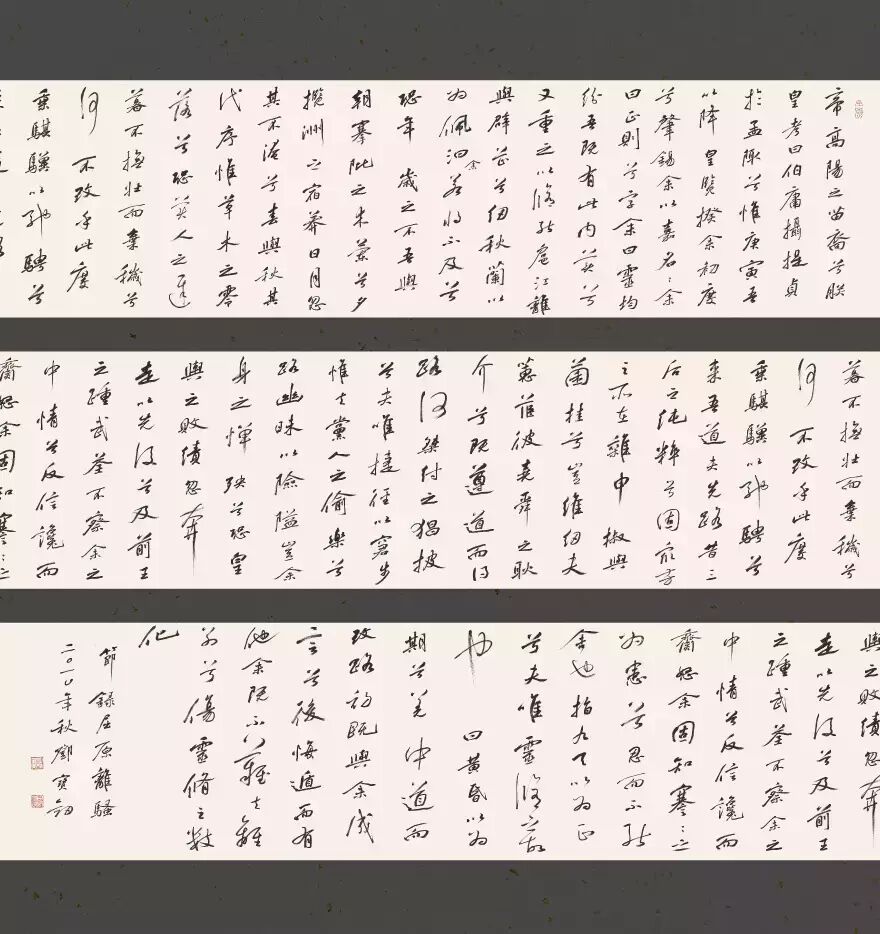 帝高陽之苗裔兮朕
皇考曰伯庸攝提貞
於孟陬兮惟庚寅吾
以降皇覽揆余初度
兮肇錫余以嘉名:余
曰正則兮字余曰靈均
紛吾既有此内美兮
又重之以脩能扈江離
與辟芷兮紉秋蘭以
為佩汩余若將不及兮
恐年歲之不吾與
朝搴阰之木蘭兮夕
攬洲之宿莽日月忽
其不淹兮春與秋其
代序惟草木之零
落兮恐美人之遲
暮不撫壯而棄穢兮
何不改乎此度
乘騏驥以馳騁兮
暮不撫壯而棄穢兮
何不改乎此度
乘騏驥以馳騁兮
來吾道夫先路昔三
后之純粹兮固眾芳
之所在雜申椒與
菌桂兮豈維紉夫
蕙茝彼堯舜之耿
介兮既遵道而得
路何桀紂之猖披
兮夫唯捷徑以窘步
惟夫黨人之偷樂兮
路幽昧以險隘豈余
身之憚殃兮恐皇
輿之敗績忽奔
走以先後兮及前王
之踵武荃不察余之
中情兮反信讒而
齌怒余固知謇:之
輿之敗績忽奔
走以先後兮及前王
之踵武荃不察余之
中情兮反信讒而
齌怒余固知謇:之
為患兮忍而不能
舍也指九天以為正
兮夫唯靈脩之故
也曰黃昏以為
期兮羌中道而
改路初既與余成
言兮後悔遁而有
他余既不難夫離
別兮傷靈脩之數
化
節錄屈原離騷
二〇一〇年秋鄧寶劍